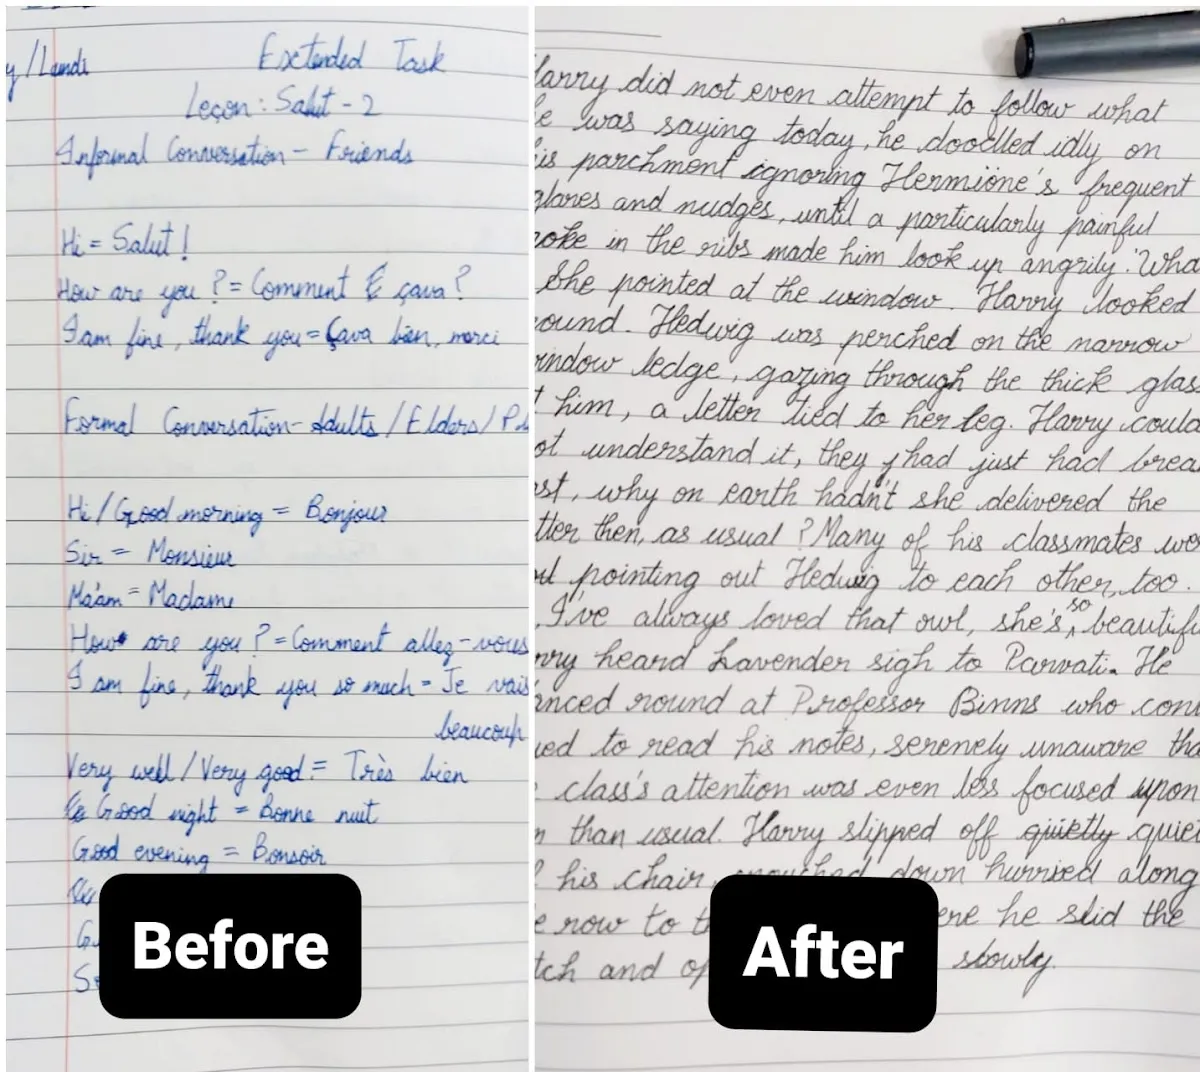 y/Landi
Extended Task
Leçon: Salut - 2
Informal Conversation - Friends
Hi = Salut!
How are you? = Comment çava?
I am fine, thank you = Çava bien, merci
Formal Conversation - Adults / Elders /
Hi/Good morning = Bonjour
Sir = Monsieur
Ma'am = Madame
How are you? = Comment allez-vous
I am fine, thank you so much = Je vais
beaucoup
Very well/Very good = Très bien
Good night = Bonne nuit
Good evening = Bonsoir
So
Before
arry did not even attempt to follow what
e was saying today, he doodled idly on
is parchment ignoring Hermione's frequent
glares and nudges, until a particularly painful
oke in the ribs made him look up angrily. 'Wha
She pointed at the window. Harry looked
ound. Hedwig was perched on the narrow
indow ledge, gazing through the thick glas
t him, a letter tied to her leg. Harry could
ot understand it, they had just had brea
st, why on earth hadn't she delivered the
tter then, as usual? Many of his classmates we
pointing out Hedwig to each other, too.
I've always loved that owl, she's so beautifu
rry heard Lavender sigh to Parvati. He
anced round at Professor Binns who cont
ued to read his notes, serenely unaware tha
class's attention was even less focused upon
m than usual. Harry slipped off quietly quiet
his chair, crouched down hurried along
e row to t ere he slid the
tch and op slowly.
After